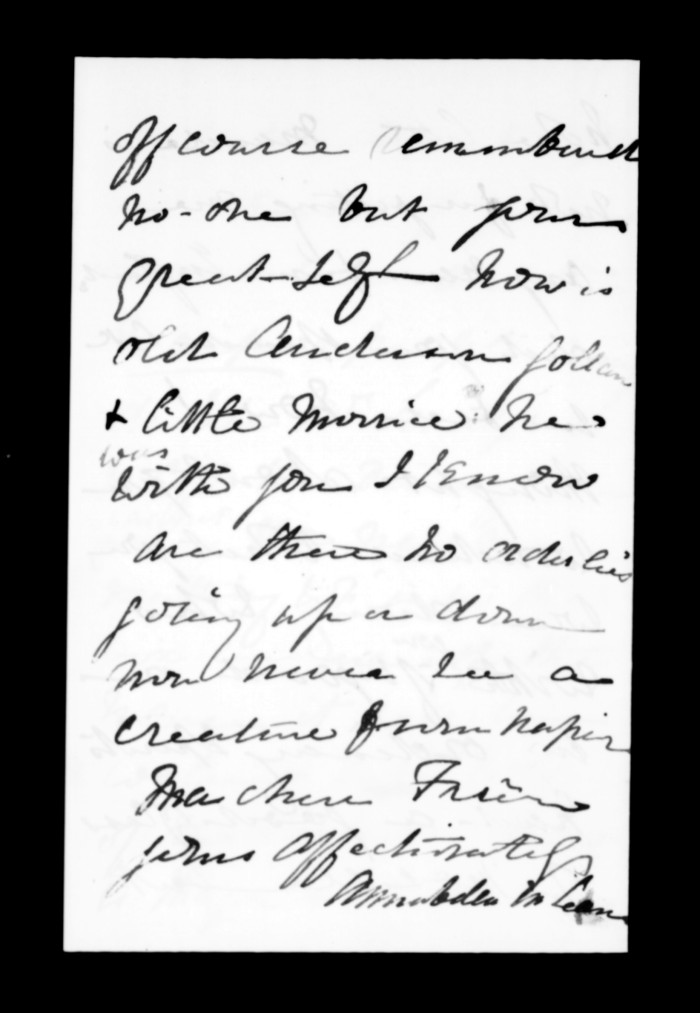 off course remembered
no-one but your
great-self How is
old Anderson Gollan
& little Morrice he
was
with you I know
are there no orderlies
going up or down
now never see a
creature from Napier
Ma chere Friend
yours affectionately
Annabella McLean